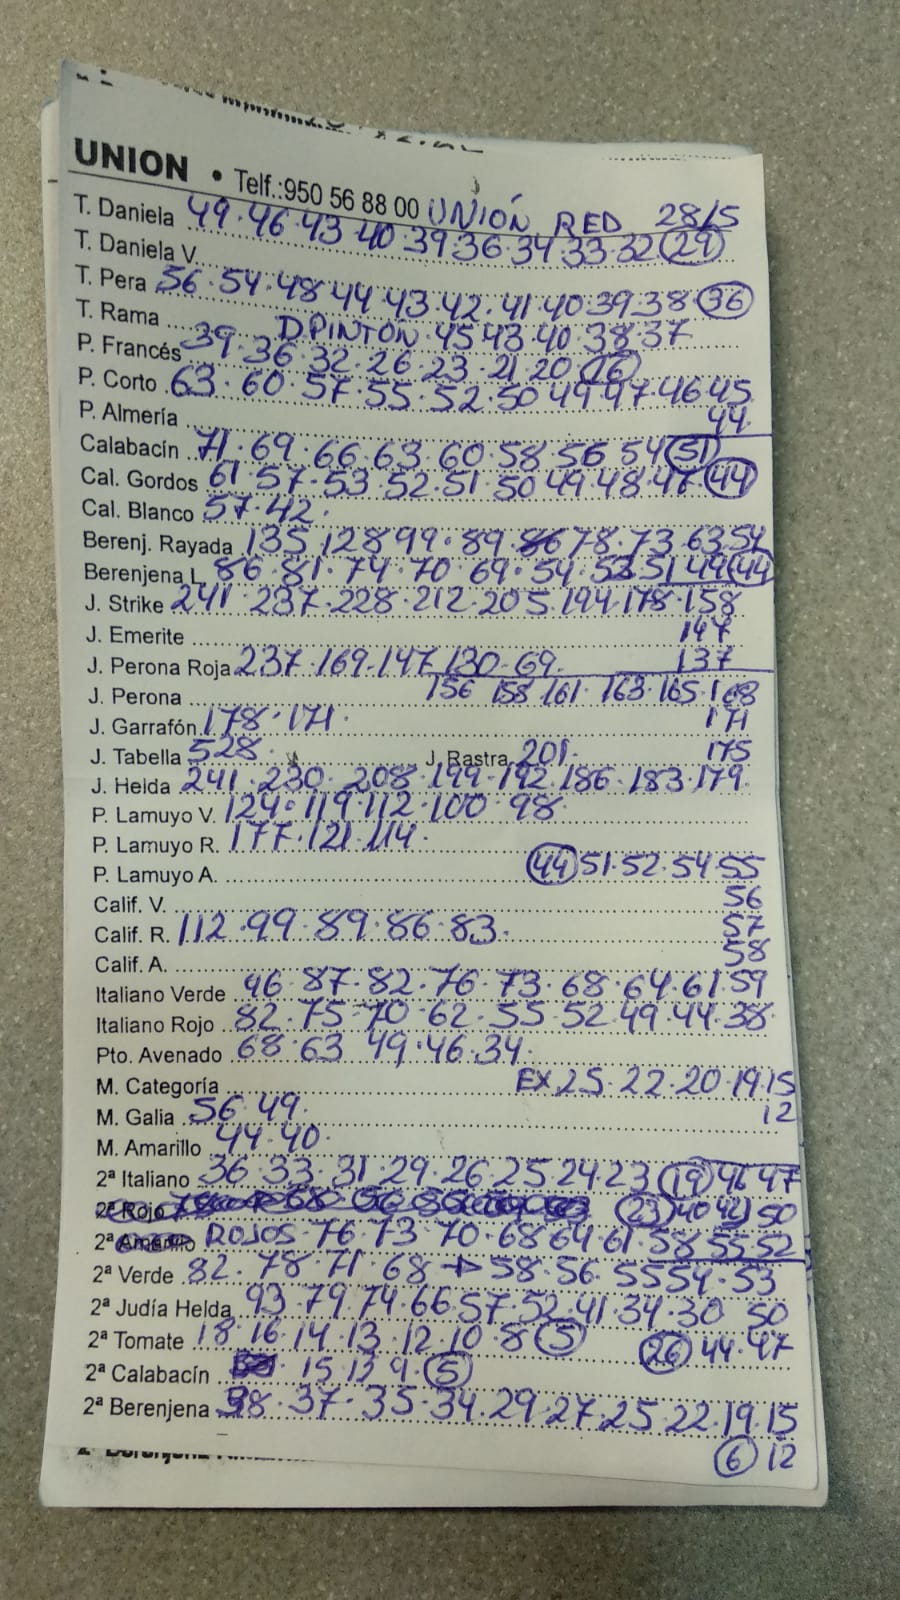 UNION • Telf.:950 56 88 00 UNIÓN RED 28/5
T. Daniela 49·46·43·40·39·36·34·33·32 (29)
T. Daniela V.
T. Pera 56·54·48·44·43·42·41·40·39·38 (36)
T. Rama D.PINTÓN·45·43·40·38·37
P. Francés 39·36·32·26·23·21·20 (16)
P. Corto 63·60·57·55·52·50·49·47·46·45
P. Almería 44
Calabacín 71·69·66·63·60·58·56·54 (51)
Cal. Gordos 61·57·53·52·51·50·49·48·47 (44)
Cal. Blanco 57·42·
Berenj. Rayada 135 128 99·89·86 78·73·63·54
Berenjena L. 86·81·74·70·69·54·53 51 49 (44)
J. Strike 241·237·228·212·205·194·178·158
J. Emerite 147
J. Perona Roja 237·169·147·130·69· 137
J. Perona 156 158 161·163·165·168
J. Garrafón 178·171· 171
J. Tabella 528· J. Rastra 201· 175
J. Helda 241·230·208·199·192·186·183·179·
P. Lamuyo V. 124·119·112·100·98
P. Lamuyo R. 177·121·114·
P. Lamuyo A. (44) 51·52·54·55
Calif. V. 56
Calif. R. 112·99·89·86·83· 57
Calif. A. 58
Italiano Verde 96·87·82·76·73·68·64·61 59
Italiano Rojo 82·75·70·62·55·52·49·44·38·
Pto. Avenado 68·63 49·46·34·
M. Categoría EX 25·22·20·19·15
M. Galia 56·49· 12
M. Amarillo 44·40·
2ª Italiano 36·33·31·29·26·25·24·23 (19) 46 47
2ª Rojo (23) 40 42 50
2ª ROJOS·76·73·70·68 64·61·58 55 52
2ª Verde 82·78·71·68 → 58·56·55 54·53
2ª Judía Helda 93·79·74·66·57·52·41·34·30 50
2ª Tomate 18·16·14·13·12·10·8 (5) (26) 44·47
2ª Calabacín 15·13 9·(5)
2ª Berenjena 38·37·35·34·29·27·25·22·19·15
(6) 12